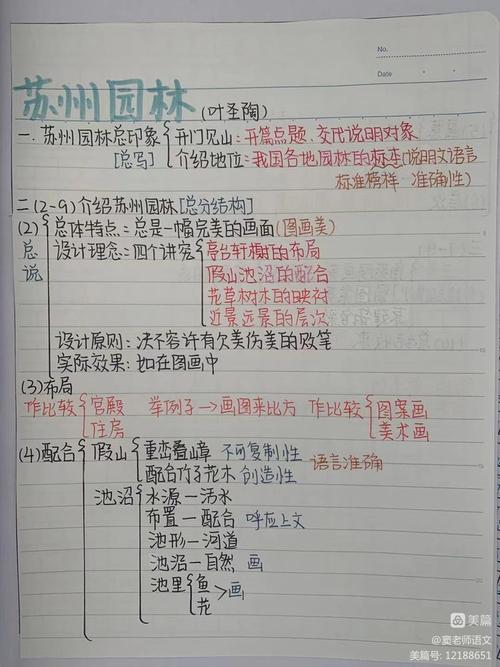 No.
Date
苏州园林(叶圣陶)
一.苏州园林总印象 开门见山:开篇点题、交代说明对象
[总写] 介绍地位:我国各地园林的标本[说明文语言
标准榜样 准确性)
二(2-9)介绍苏州园林[总分结构]
(2) 总体特点:总是一幅完美的画面(图画美)
总说 设计理念:四个讲究 亭台轩榭的布局
假山池沼的配合
花草树木的映衬
近景远景的层次
设计原则:决不容许有欠美伤美的败笔
实际效果:如在图画中
(3)布局
作比较 宫殿 住房 举例子→画图来比方 作比较 图案画 美术画
(4)配合 假山 重峦叠嶂 不可复制性 语言准确
配合竹子花木 创造性
池沼 水源—活水
布置—配合 呼应上文
池形—河道
池沼—自然 画
池里 鱼 花 >画
美篇
@窦老师语文
美篇号:12188651